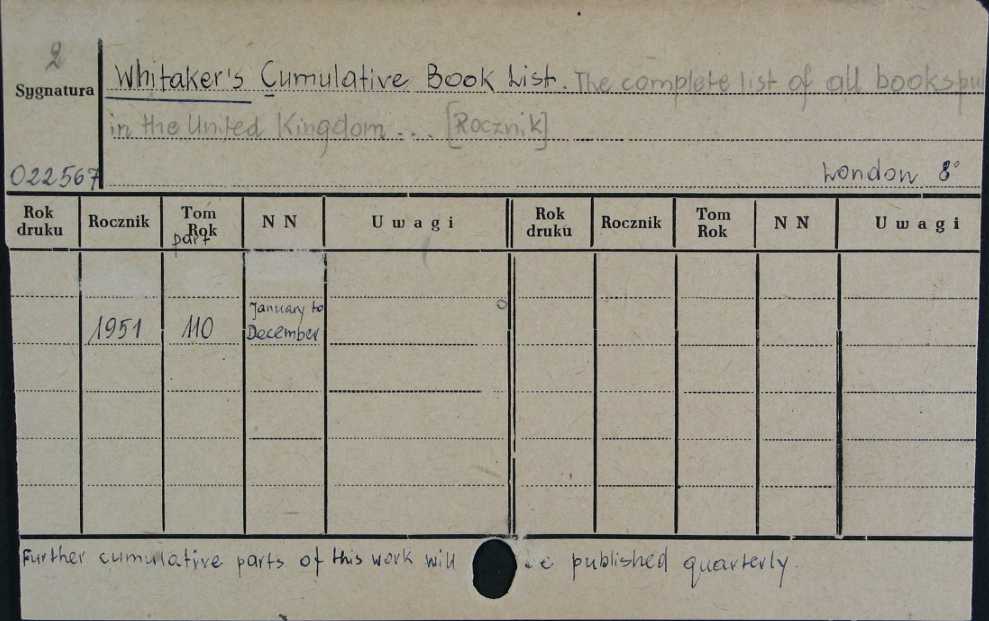 2
Sygnatura
Whitaker's Cumulative Book List. The complete list of all books pu
in the United Kingdom ... [Rocznik]
022567
London 8°
Rok druku Rocznik Tom Rok NN Uwagi Rok druku Rocznik Tom Rok NN Uwagi
part
January to
1951 110 December
Further cumulative parts of this work will be published quarterly.